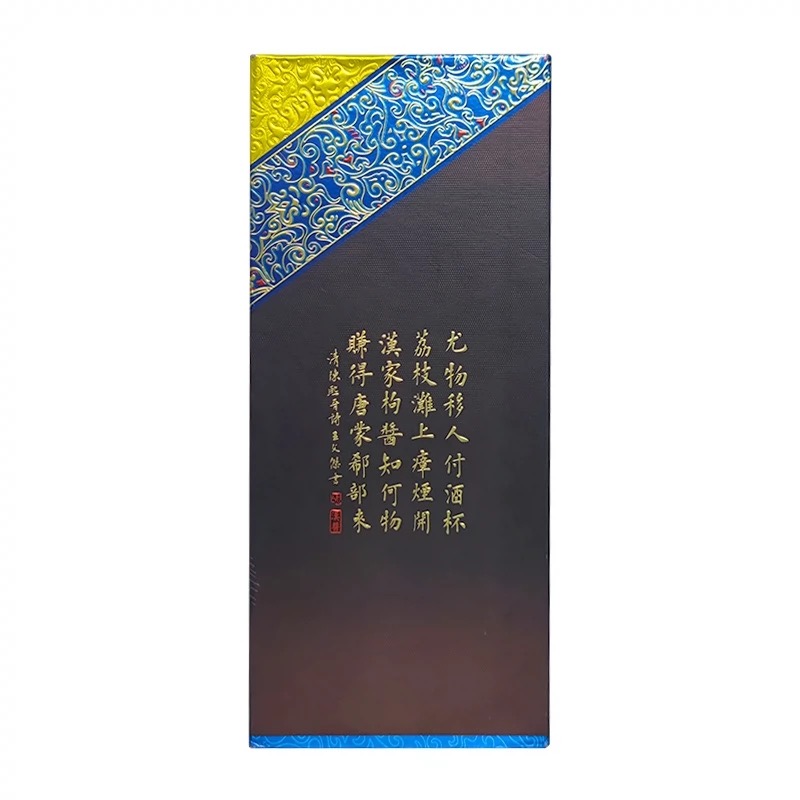 尤物移人付酒杯
荔枝灘上瘴煙開
漢家枸醬知何物
賺得唐蒙鄱部來
清陳熙晉詩 王文傑書